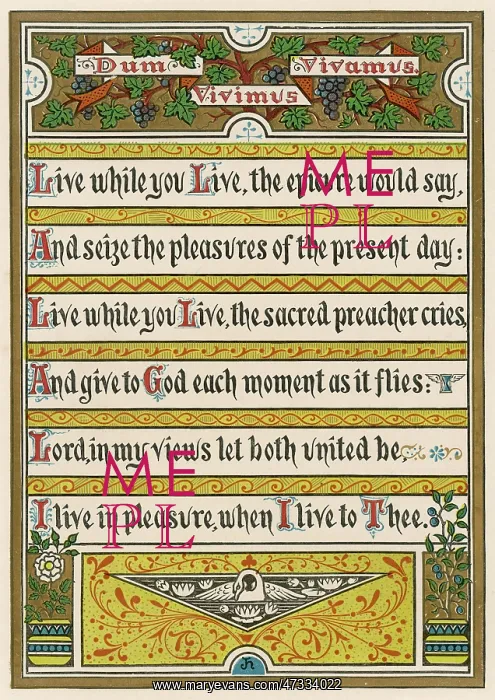 Dum
Vivimus
Vivamus.
Live while you Live, the epicure would say,
And seize the pleasures of the present day:
Live while you Live, the sacred preacher cries,
And give to God each moment as it flies:
Lord, in my views let both united be,
I live in pleasure, when I live to Thee.
ME
PL
ME
PL
www.maryevans.com/47334022